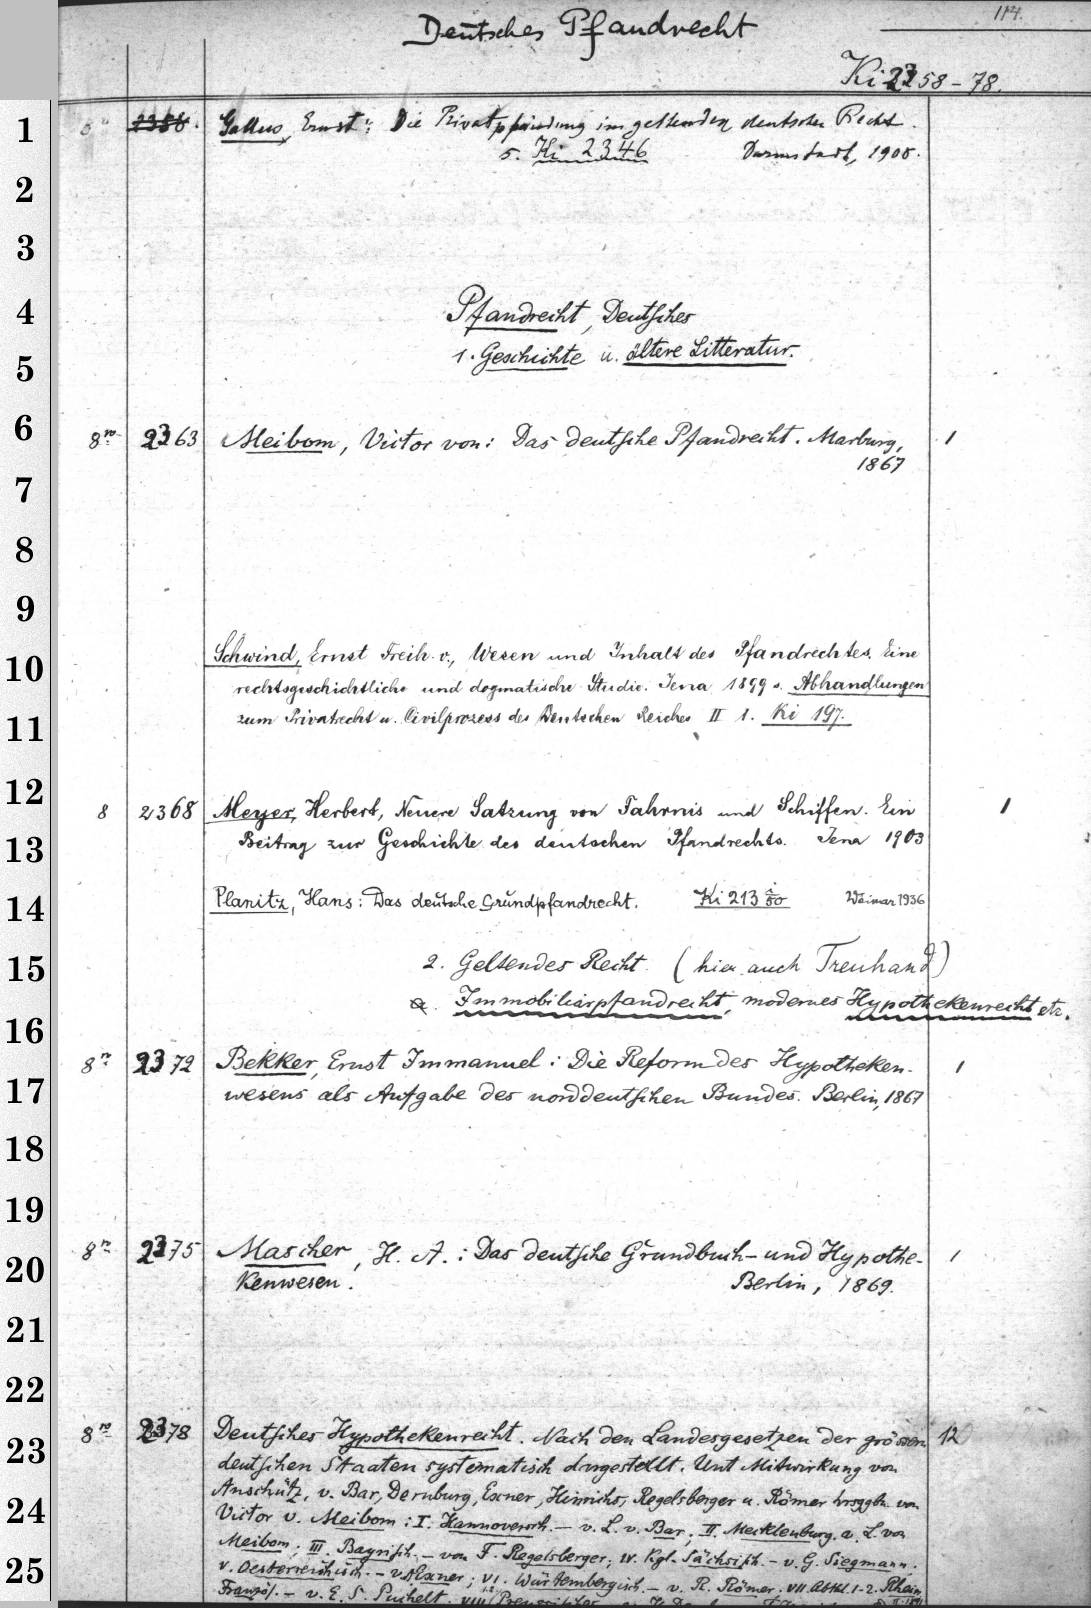 114.
Deutsches Pfandrecht
Ki 2358-78.
1 2358. Gallus, Ernst: Die Privatpfändung im geltenden deutschen Recht.
s. Ki 2346 Darmstadt, 1905.
2
3
4 Pfandrecht, Deutsches
5 1. Geschichte u. ältere Litteratur.
6 8vo 2363 Meibom, Victor von: Das deutsche Pfandrecht. Marburg, 1
1867
7
8
9
10 Schwind, Ernst Freih. v., Wesen und Inhalt des Pfandrechtes. Eine
rechtsgeschichtliche und dogmatische Studie. Jena 1899 s. Abhandlungen
11 zum Privatrecht u. Civilprozess des Deutschen Reiches II 1. Ki 197.
12 8 2368 Meyer, Herbert, Neuere Satzung von Fahrnis und Schiffen. Ein 1
13 Beitrag zur Geschichte des deutschen Pfandrechts. Jena 1903
14 Planitz, Hans: Das deutsche Grundpfandrecht. Ki 213 i/80 Weimar 1936
15 2. Geltendes Recht. (hier auch Treuhand)
a. Immobiliarpfandrecht, modernes Hypothekenrecht etc.
16
8vo 2372 Bekker, Ernst Immanuel: Die Reform des Hypotheken- 1
17 wesens als Aufgabe des norddeutschen Bundes. Berlin, 1867
18
19
8vo 2375 Mascher, H. A.: Das deutsche Grundbuch- und Hypothe- 1
20 kenwesen. Berlin, 1869.
21
22
8vo 2378 Deutsches Hypothekenrecht. Nach den Landesgesetzen der grösseren 12
23 deutschen Staaten systematisch dargestellt. Unt Mitwirkung von
Anschütz, v. Bar, Dernburg, Exner, Hinrichs, Regelsberger u. Römer hrsggbn von
24 Victor v. Meibom: I. Hannoversch. – v. L. v. Bar. II. Mecklenburg. a. L. von
Meibom; III. Bayrisch. – von F. Regelsberger; IV. Kgl. Sächsisch. – v. G. Siegmann.
25 V. Oesterreichisch. – v. A. Exner; VI. Württembergisch. – v. R. Römer. VII Abthl. 1-2. Rhein.
Französ. – v. E. S. Puchelt. VIII Preussisches